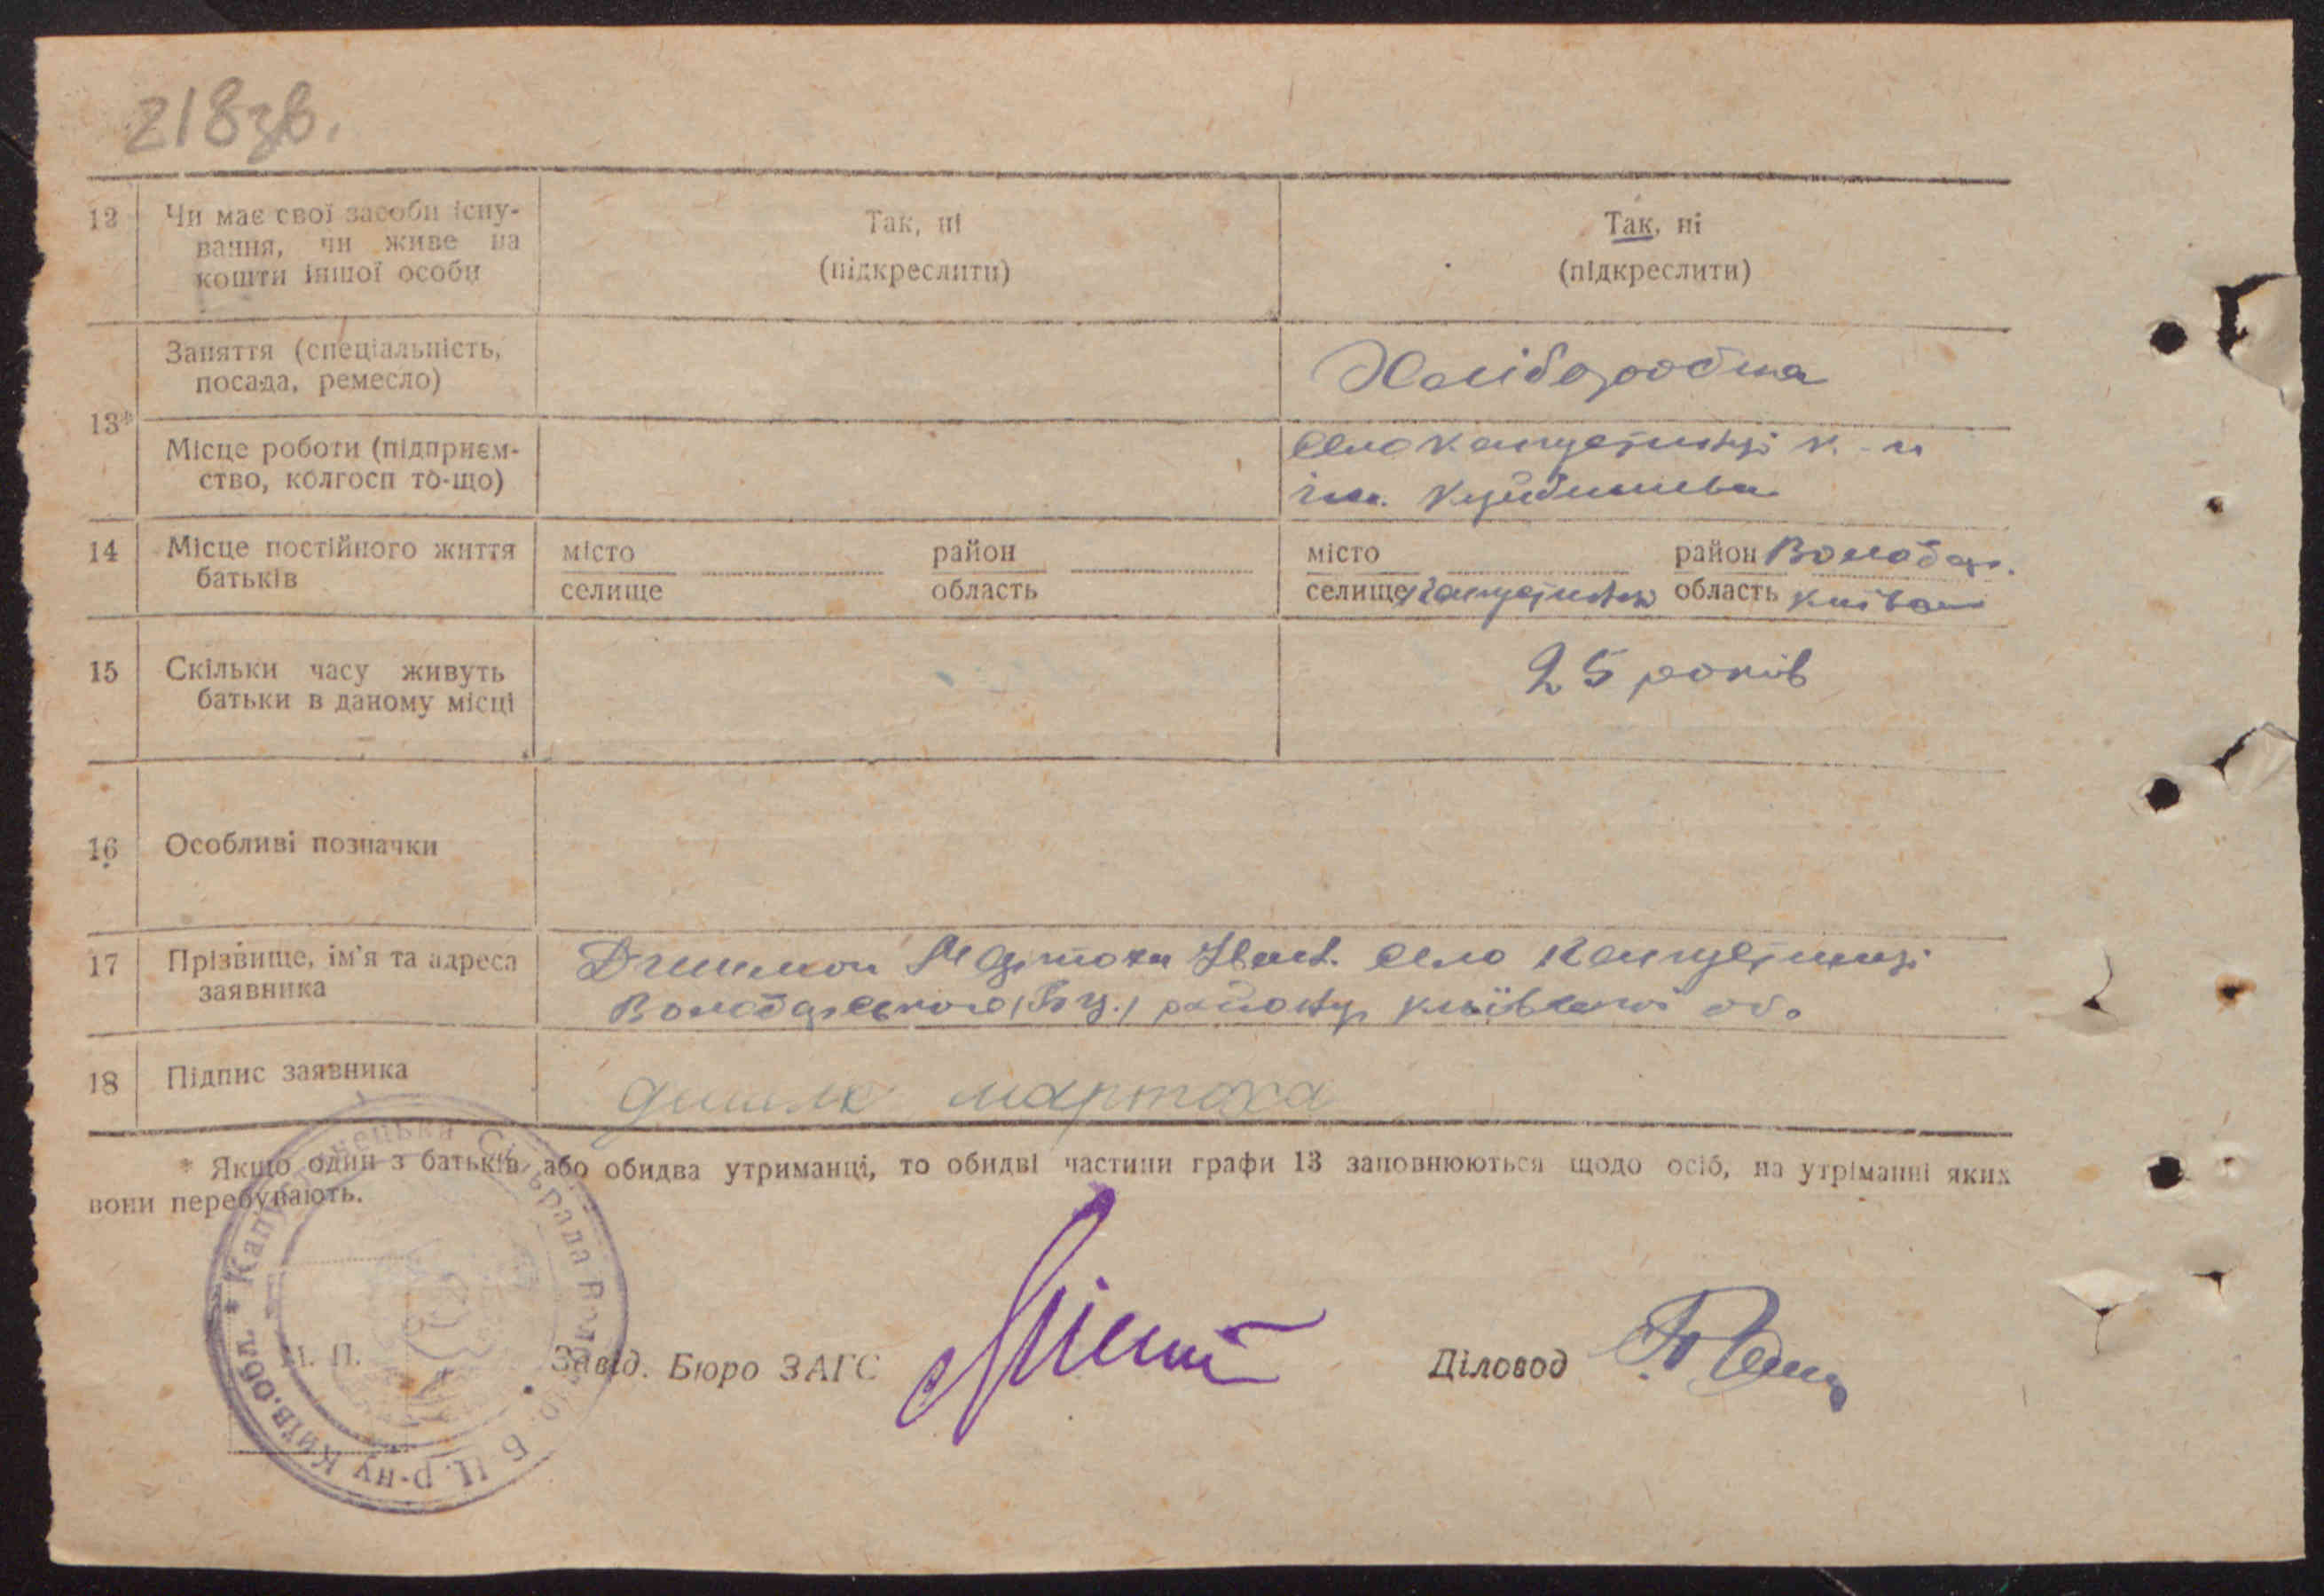 218зв.
12 Чи має свої засоби існу-
вання, чи живе на
кошти іншої особи
Так, ні
(підкреслити)
Так, ні
(підкреслити)
13*
Заняття (спеціальність,
посада, ремесло)
Хліборобка
Місце роботи (підприєм-
ство, колгосп то-що)
село Капустинці к.
ім. Куйбишева
14 Місце постійного життя
батьків
місто район
селище область
місто район Володар.
селище Капустинці область Київська
15 Скільки часу живуть
батьки в даному місці
25 років
16 Особливі позначки
17 Прізвище, ім'я та адреса
заявника
Мартоха Іван. село Капустинці
Володарського (Бц.) району Київської об.
18 Підпис заявника
мартоха
* Якщо один з батьків або обидва утриманці, то обидві частини графи 13 заповнюються щодо осіб, на утріманні яких
вони перебувають.
М. П.
Завід. Бюро ЗАГС
Діловод
Сільрада
Б Ц. р-ну Київ.обл. *